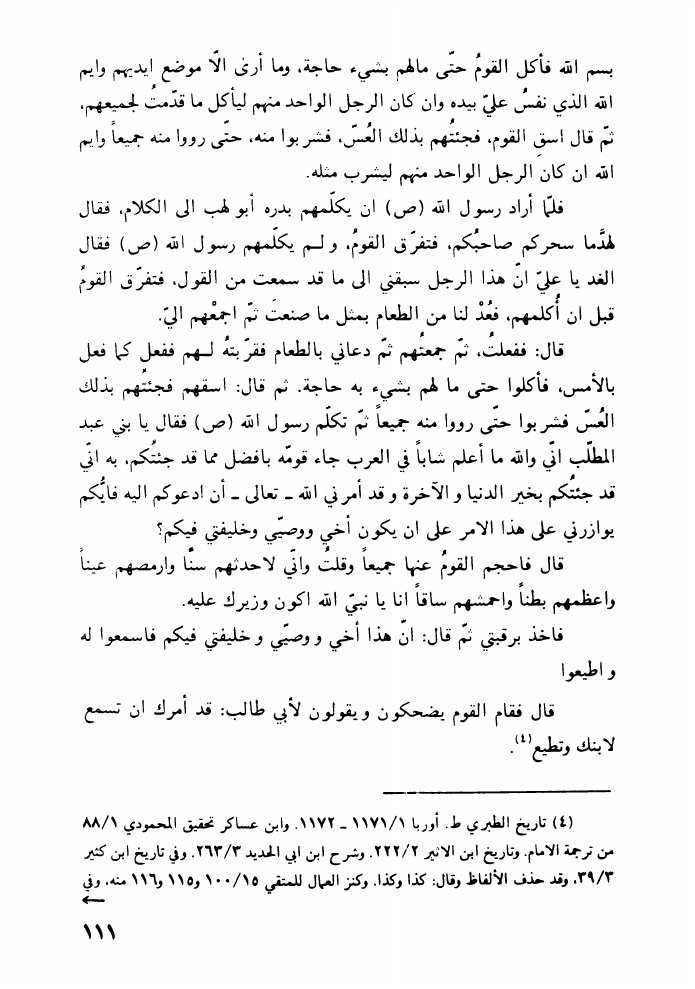 بسم الله فأكل القومُ حتّى مالهم بشيء حاجة، وما أرى الّا موضع ايديهم وايم
الله الذي نفسُ عليّ بيده وان كان الرجل الواحد منهم ليأكل ما قدّمتُ لجميعهم،
ثمّ قال اسقِ القوم، فجئتُهم بذلك العُسّ، فشربوا منه، حتّى رووا منه جميعاً وايم
الله ان كان الرجل الواحد منهم ليشرب مثله.
فلمّا أراد رسول الله (ص) ان يكلّمهم بدره أبو لهب الى الكلام، فقال
لهدَّما سحركم صاحبُكم، فتفرّق القومُ، ولم يكلّمهم رسول الله (ص) فقال
الغد يا عليّ انّ هذا الرجل سبقني الى ما قد سمعت من القول، فتفرّق القومُ
قبل ان أُكلمهم، فعُدْ لنا من الطعام بمثل ما صنعتَ ثمّ اجمعْهم اليّ.
قال: ففعلتُ، ثمّ جمعتُهم ثمّ دعاني بالطعام فقرّبتهُ لهم ففعل كما فعل
بالأمس، فأكلوا حتى ما لهم بشيء به حاجة. ثم قال: اسقهم فجئتُهم بذلك
العُسّ فشربوا حتّى رووا منه جميعاً ثمّ تكلّم رسول الله (ص) فقال يا بني عبد
المطلّب انّي والله ما أعلم شاباً في العرب جاء قومّه بافضل مما قد جئتُكم، به انّي
قد جئتُكم بخير الدنيا والآخرة وقد أمرني الله ـ تعالى ـ أن ادعوكم اليه فايُّكم
يوازرني على هذا الامر على ان يكون أخي ووصيّي وخليفتي فيكم؟
قال فاحجم القومُ عنها جميعاً وقلتُ وانّي لاحدثهم سنّاً وارمصهم عيناً
واعظمهم بطناً واحمشهم ساقاً انا يا نبيّ الله اكون وزيرك عليه.
فاخذ برقبتي ثمّ قال: انّ هذا أخي ووصيّي وخليفتي فيكم فاسمعوا له
واطيعوا
قال فقام القوم يضحكون ويقولون لأبي طالب: قد أمرك ان تسمع
لابنك وتطيع(٤).
(٤) تاريخ الطبري ط. أوربا ١١٧١/١ ـ ١١٧٢. وابن عساكر تحقيق المحمودي ٨٨/١
من ترجمة الامام. وتاريخ ابن الاثير ٢٢٢/٢. وشرح ابن ابي الحديد ٢٦٣/٣. وفي تاريخ ابن كثير
٣٩/٣، وقد حذف الألفاظ وقال: كذا وكذا. وكنز العمال للمتقي ١٠٠/١٥ و١١٥ و١١٦ منه، وفي
←
١١١